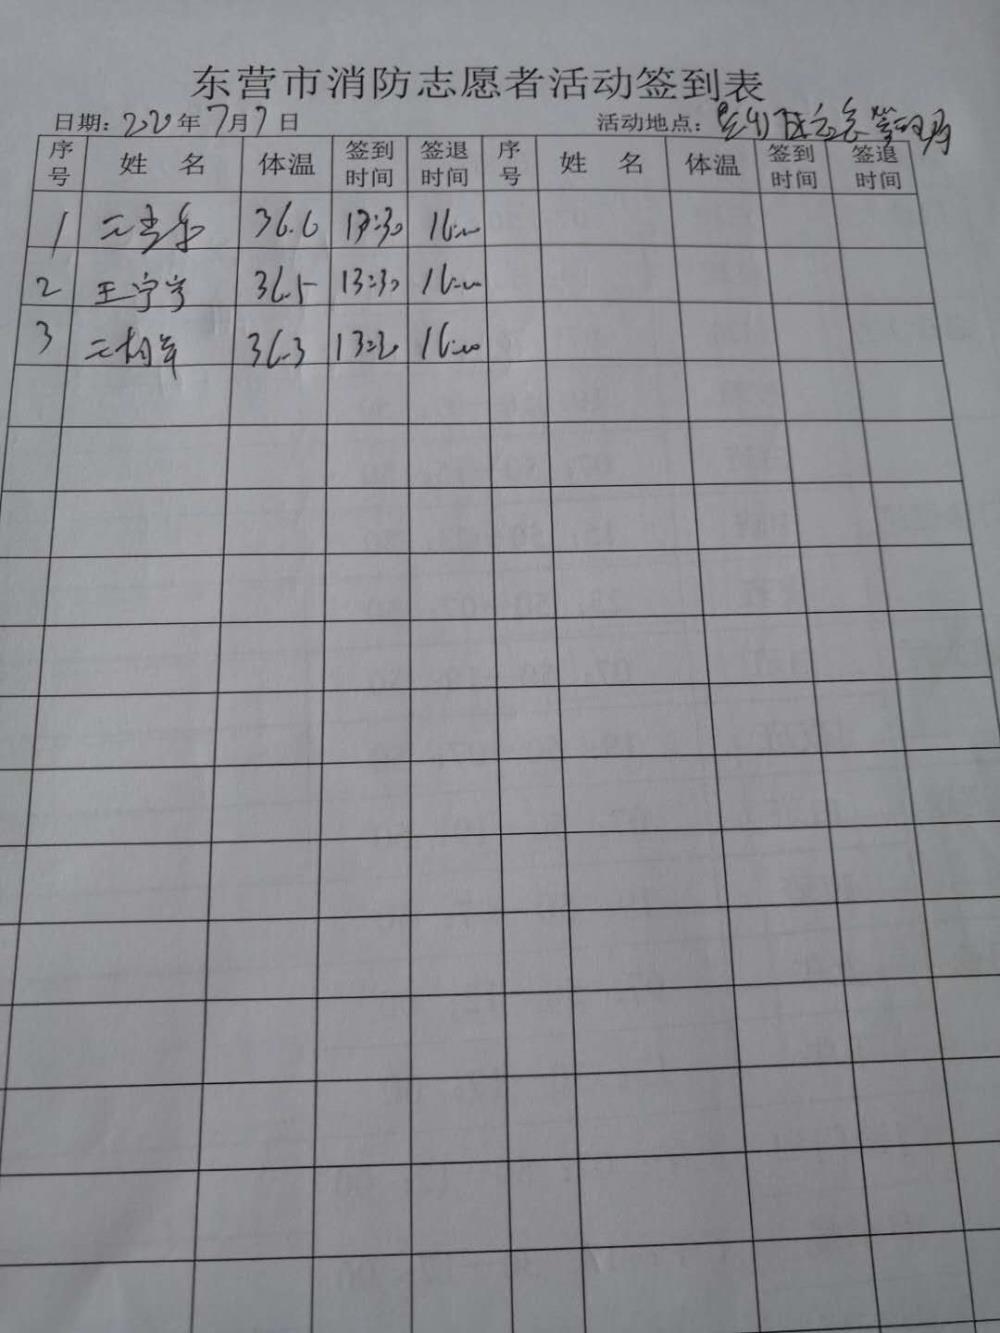 东营市消防志愿者活动签到表
日期: 2020年7月7日 活动地点: 应急管理局
序号 姓 名 体温 签到时间 签退时间 序号 姓 名 体温 签到时间 签退时间
1 36.6 13:30 16:00
2 王宁宁 36.5 13:30 16:00
3 36.3 13:30 16:00